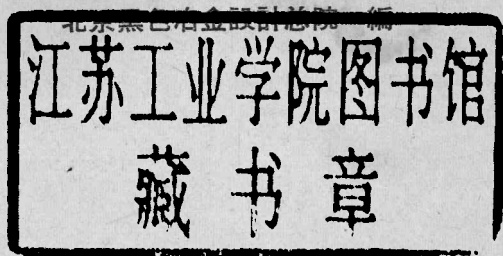 北京黑色冶金設計总院 編
江苏工业学院图书馆
藏书章